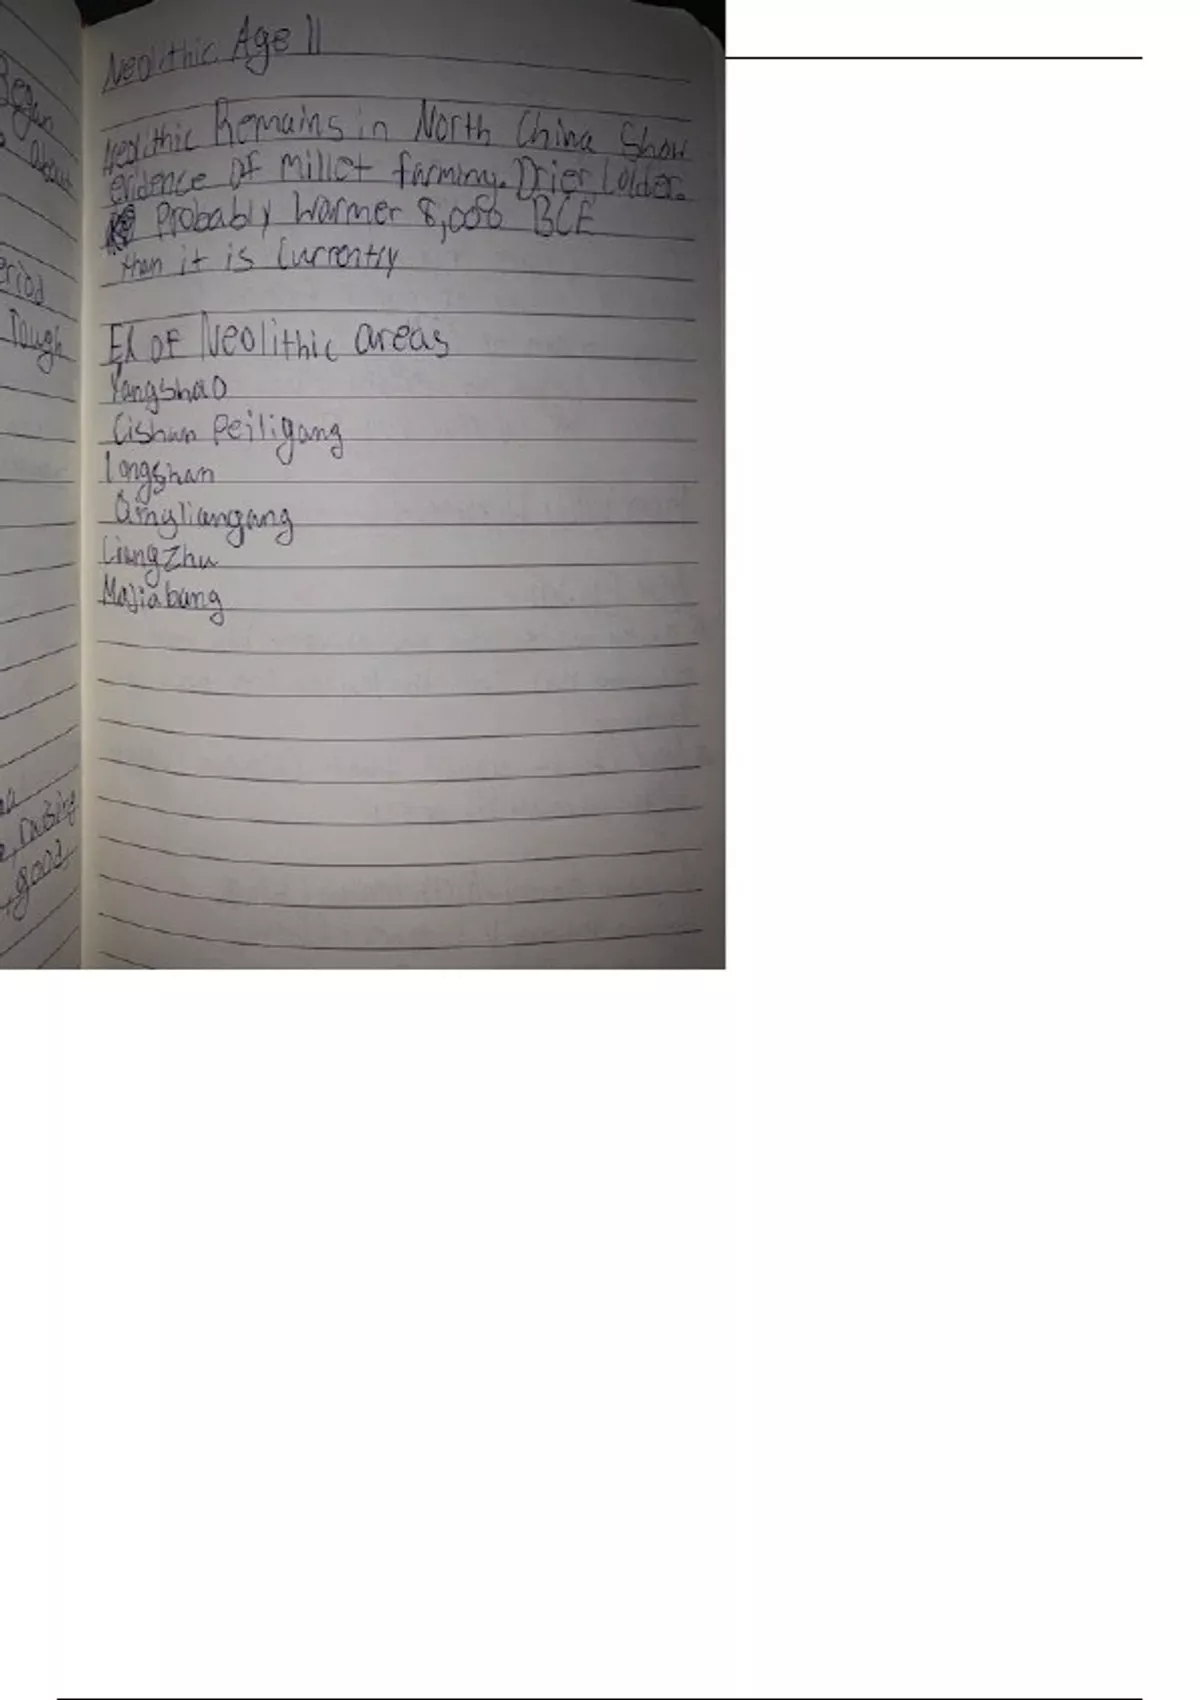 Began
about
eriod
Tough
Dabing
good
Neolithic Age II
Neolithic Remains in North China Show
evidence of millet farming. Drier Colder.
Probably Warmer 8,000 BCE
than it is Currently
Ex of Neolithic areas
Yangshao
Cishan Peiligang
Longshan
Qingliangang
Liangzhu
Majiabang